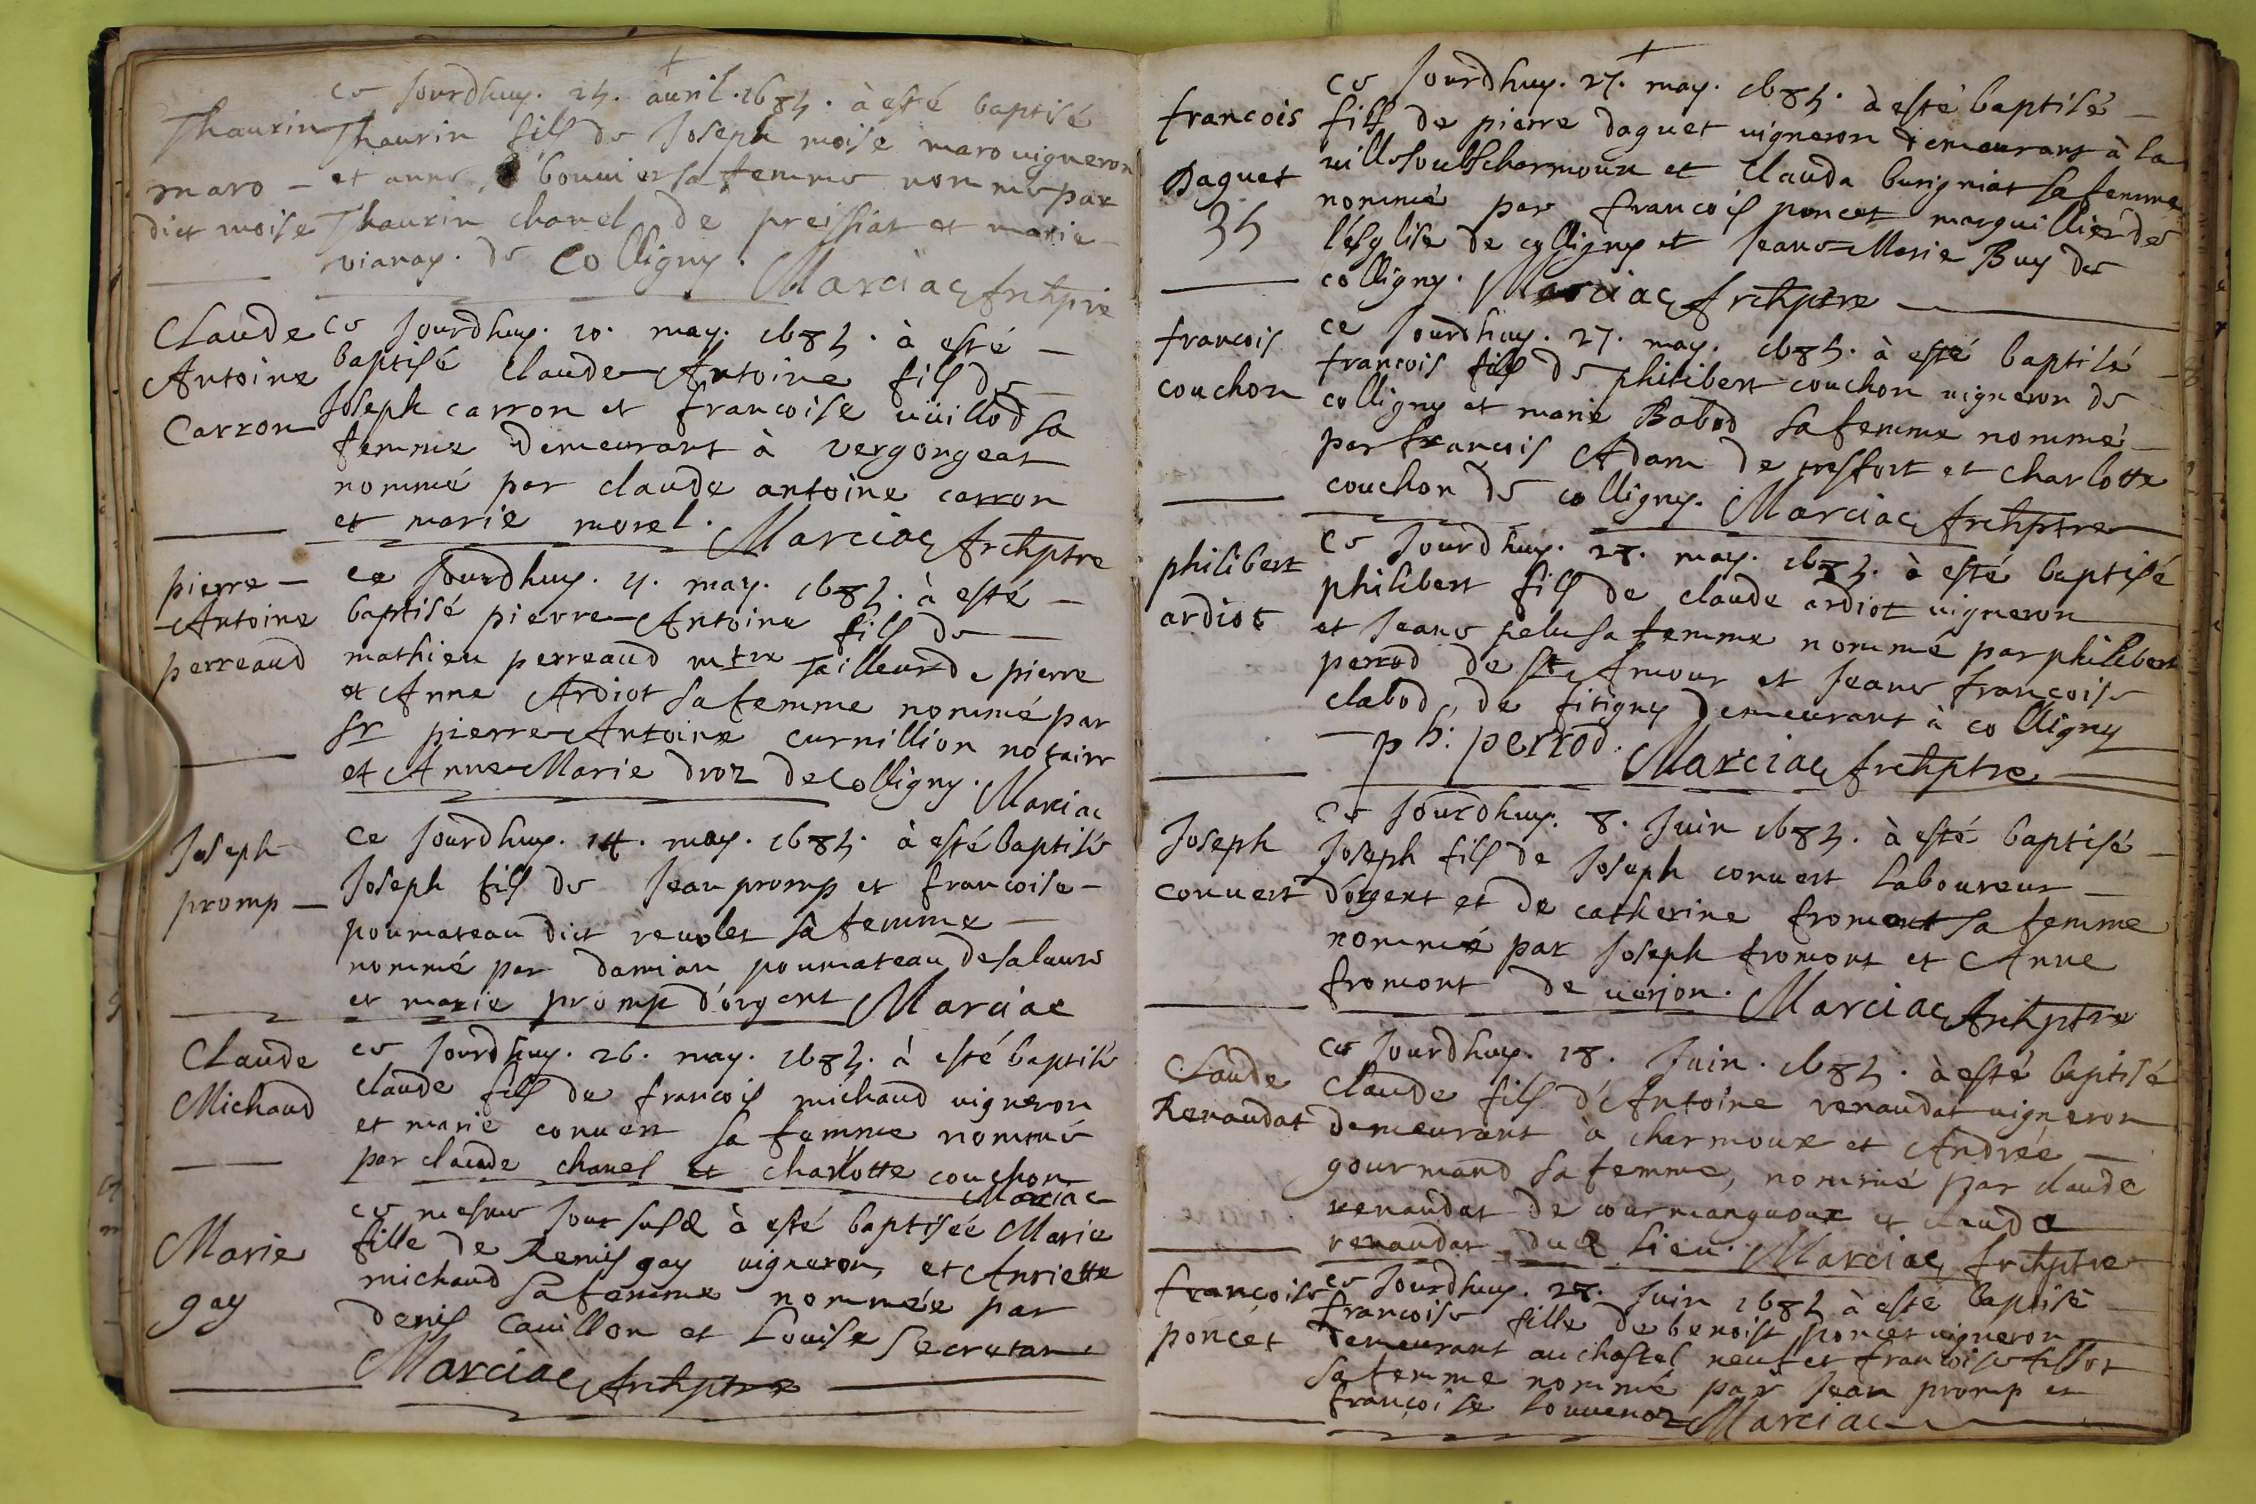 ce Jourdhuy. 25. auril. 1685. à esté baptisé
Thaurin Thaurin fils de Joseph moise maro uigneron
maro – et anne bouuier sa femme nommé par
dict moise Thaurin chanel de preissiat et marie –
uianay. de Colligny. Marciac Archptre
Claude ce Jourdhuy. 10. may. 1685. à esté –
Antoine baptisé Claude Antoine fils de
Carron Joseph carron et francoise uüillod sa
femme demeurant à vergongeat
nommé par claude antoine carron
et marie morel. Marciac Archptre
pierre – ce Jourdhuy. 11. may. 1685. à esté –
Antoine baptisé pierre Antoine fils de –
perreaud mathieu perreaud mtre Tailleur de pierre
et Anne Ardiot sa femme nommé par
Sr pierre Antoine curnillion notaire
et Anne Marie droz de Colligny. Marciac
Joseph ce Jourdhuy. 14. may. 1685. à esté baptisé
promp – Joseph fils de Jean promp et francoise –
poumateau dict reuolet sa femme –
nommé par damian poumateau de salaure
et marie promp d'orgent Marciac
Claude ce Jourdhuy. 26. may. 1685. à esté baptisé
Michaud claude fils de francois michaud uigneron
et marie conuert sa femme nommé
par claude chanel et charlotte couchon
Marciac
ce mesme Jour susd à esté baptisée Marie
Marie fille de Remis gay uigneron, et Anriette
gay michaud sa femme nommée par
denis Cauillon et Louise Secretan
Marciac Archptre
ce Jourdhuy. 27. may. 1685. à esté baptisé –
francois fils de pierre daguet uigneron demeurant à la
Daguet uille soubs charmoux et Clauda burigniat sa femme
35 nommé par francois poncet marguillier de
l'église de colligny et Jeane Marie Buy de
colligny. Marciac Archptre
francois ce Jourdhuy. 27. may. 1685. à esté baptisé –
couchon francois fils de philibert couchon uigneron de
colligny et marie Babod sa femme nommé –
par francois Adam de tresfort et Charlotte
couchon de colligny. Marciac Archptre
philibert ce Jourdhuy. 28. may. 1685. à esté baptisé
ardiot philibert fils de claude ardiot uigneron
et Jeane pelu sa femme nommé par philibert
perrod de St Amour et Jeane francoise
clabod, de fitigny demeurant à colligny
ph: perrod. Marciac Archptre
Joseph ce Jourdhuy. 8. Juin 1685. à esté baptisé –
conuert Joseph fils de Joseph conuert Laboureur –
d'orgent et de catherine fromont sa femme
nommé par Joseph fromont et Anne
fromont de uerjon. Marciac Archptre
Claude ce Jourdhuy. 18. Juin. 1685. à esté baptisé
Renaudat Claude fils d'Antoine renaudat uigneron
demeurant à charmoux et Andrée –
gourmand sa femme, nommé par claude
renaudat de courmangoux et clauda
renaudat, dud lieu. Marciac Archptre
francoise ce Jourdhuy. 28. Juin 1685 à esté baptisé –
poncet francoise fille de benoist poncet uigneron
demeurant au chastel neuf et francoise tissot
sa femme nommé par Jean promp et
francoise Louuenoz Marciac